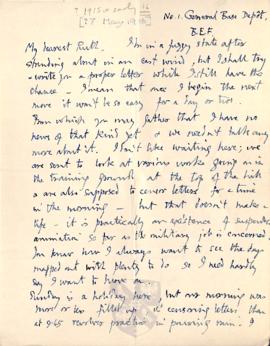 ? 1915 or early 16
[27 May 19
No. 1. General Base Depôt,
B.E.F.
My dearest Ruth. I'm in a foggy state after
standing about in an east wind, but I shall try
to write you a proper letter while I still have the
chance. I mean that once I begin the next
move it won't be so easy for a day or two.
From which you may gather that I have no
news of that kind yet & we needn't talk any
more about it. I don't like waiting here; we
are sent to look at various works going on in
the training ground at the top of the hill
& are also supposed to censor letters for a time
in the morning – but that doesn't make a
life – it is practically an existence of suspended
animation so far as the military job is concerned
You know how I always want to see the day
mapped out with plenty to do so I need hardly
say I want to move on
Sunday is a holiday here but my morning was
more or less filled up in censoring letters than
at 9.45 revolver practice in pouring rain. I